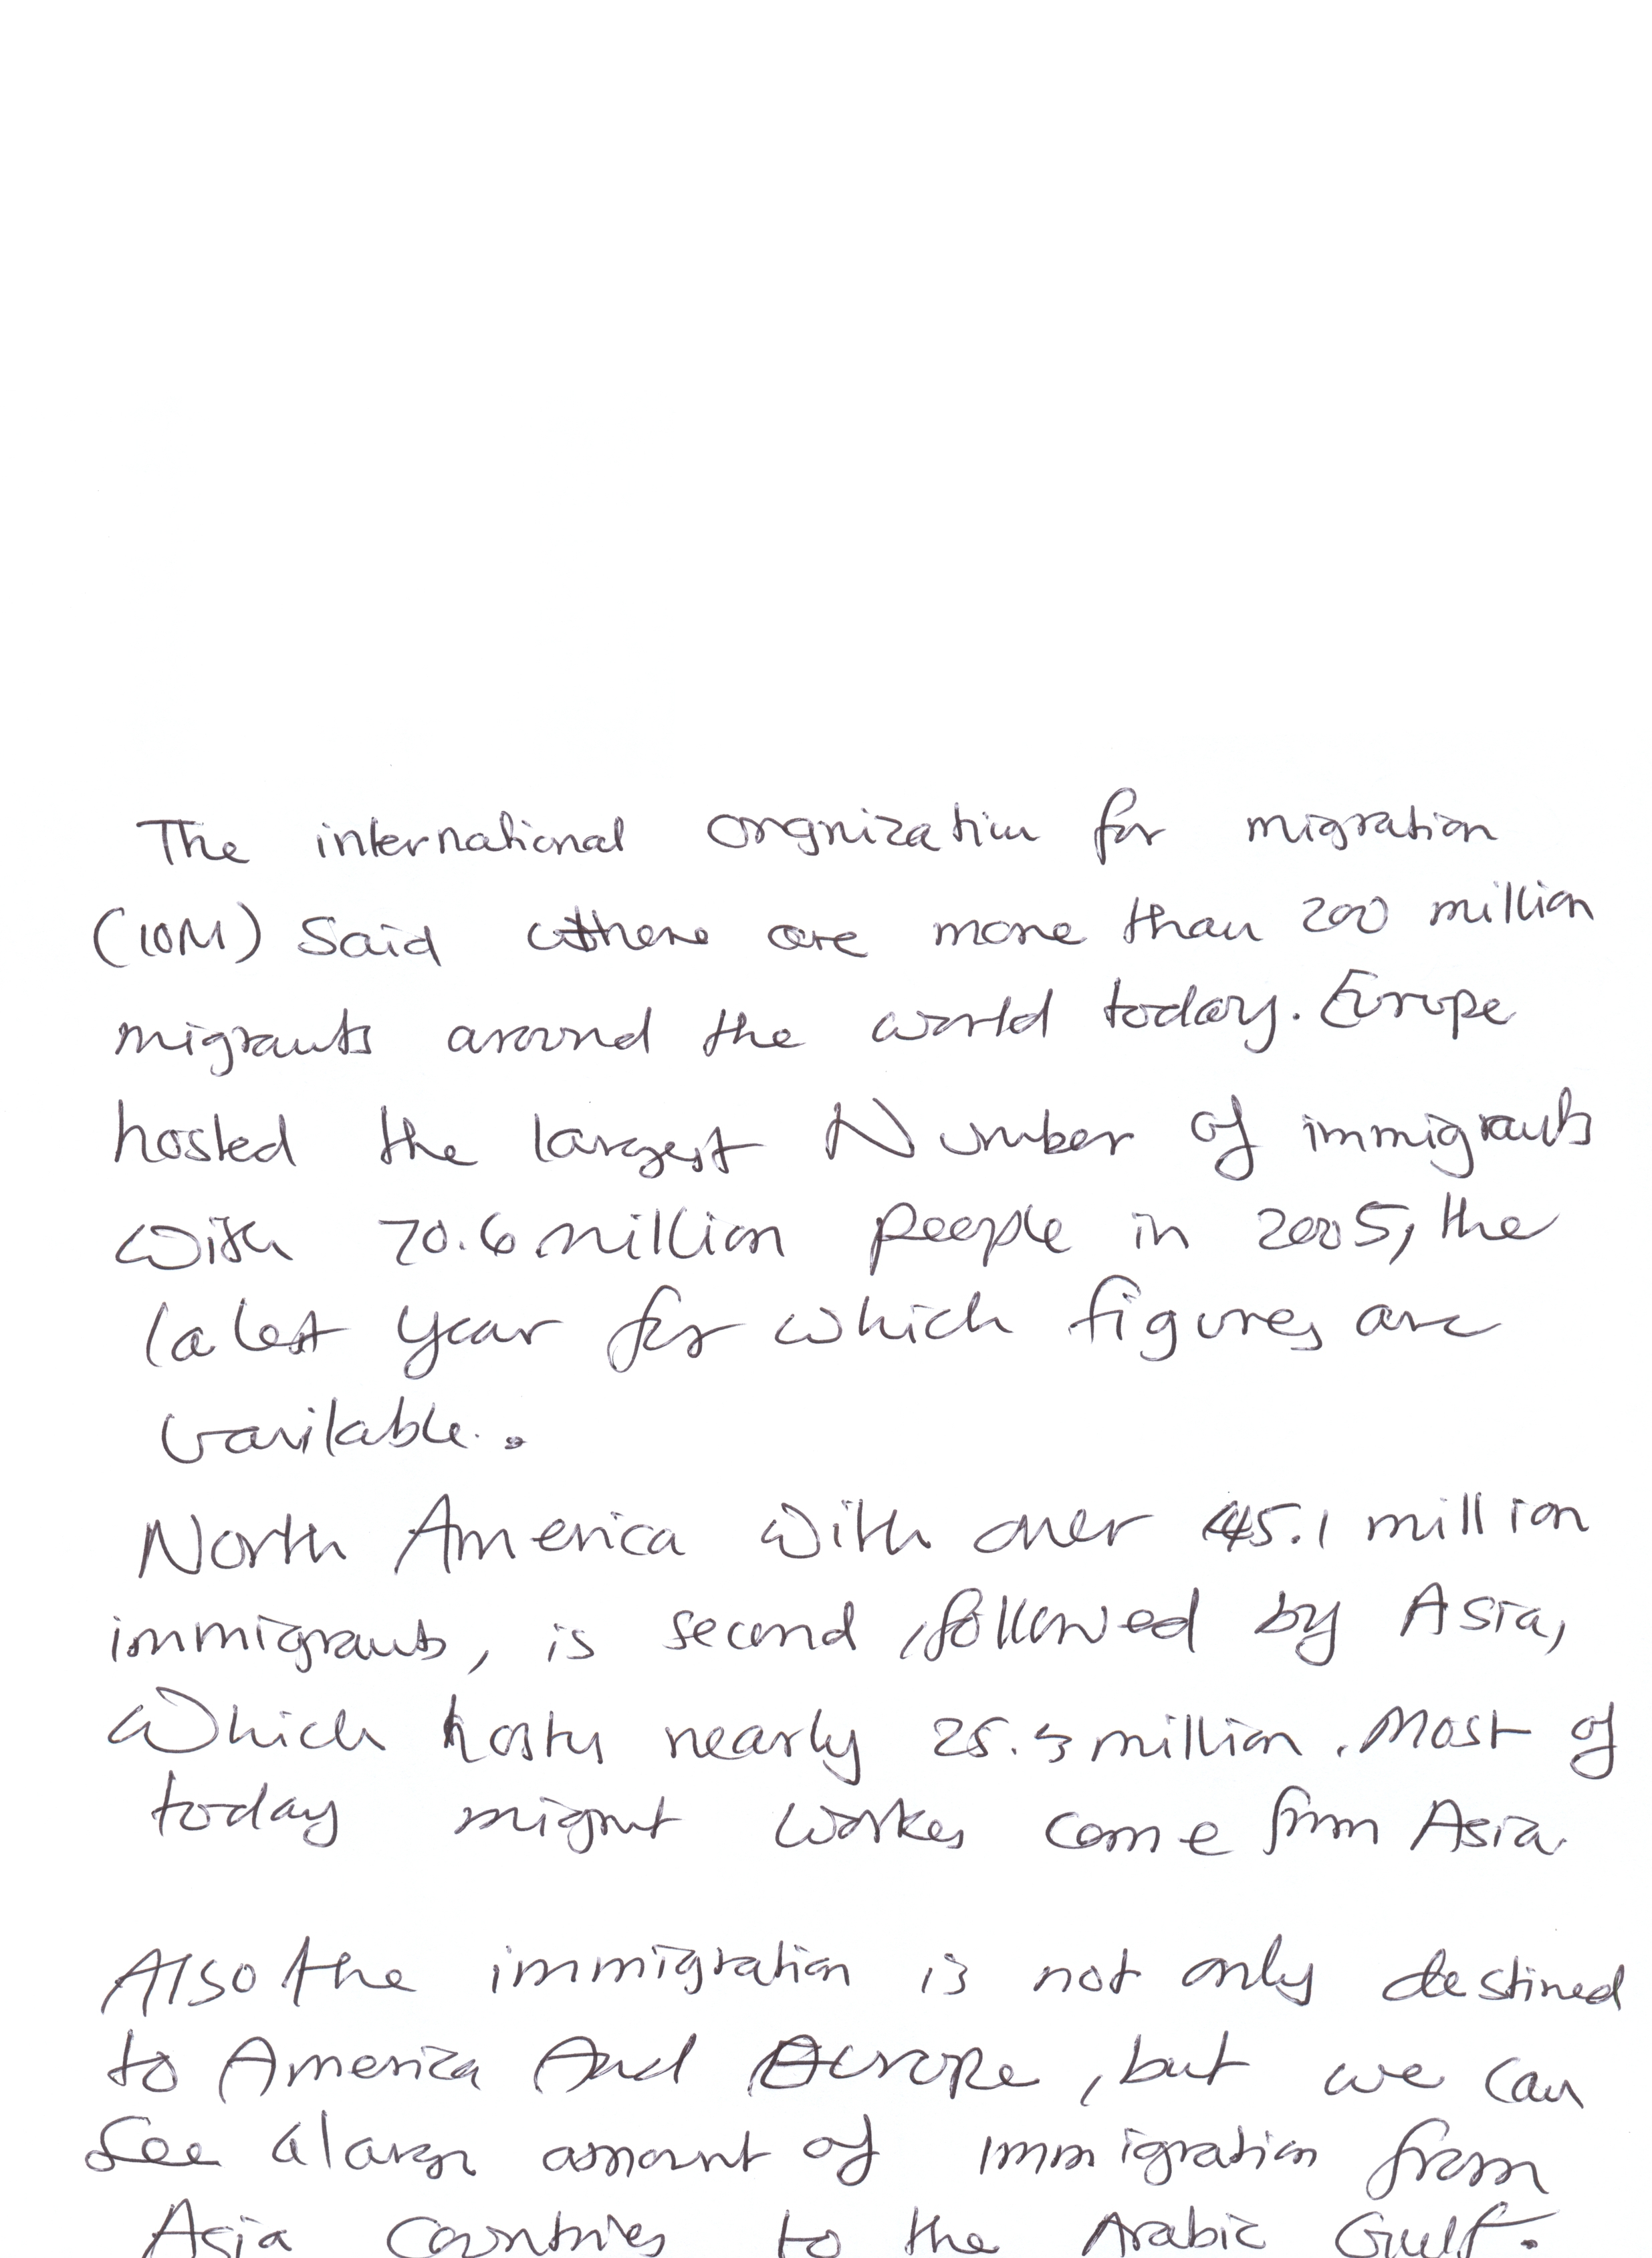 The international orgnization for migration
(IOM) Said there are more than 200 million
migrants around the world today. Europe
hosted the largest Number of immigrants
with 70.6 million people in 2005, the
latest year for which figures are
vailable.
North America with over 45.1 million
immigrants, is second, followed by Asia,
Which hosts nearly 25.3 million. Most of
today migrnt workes come from Asia.
Also the immigration is not only destined
to America And Europe, but we can
See a large amount of immigration from
Asia Countries to the Arabic Gulf.